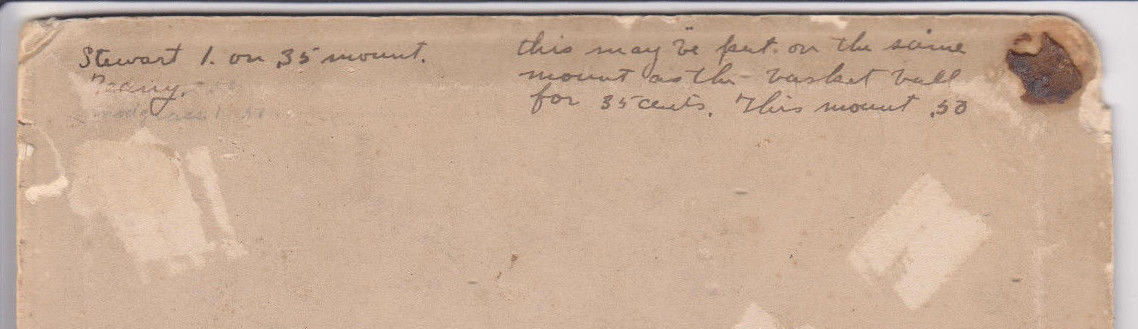 Stewart 1. on .35 mount.
this may be put on the same
mount as the basket ball
for 35 cents. This mount .50